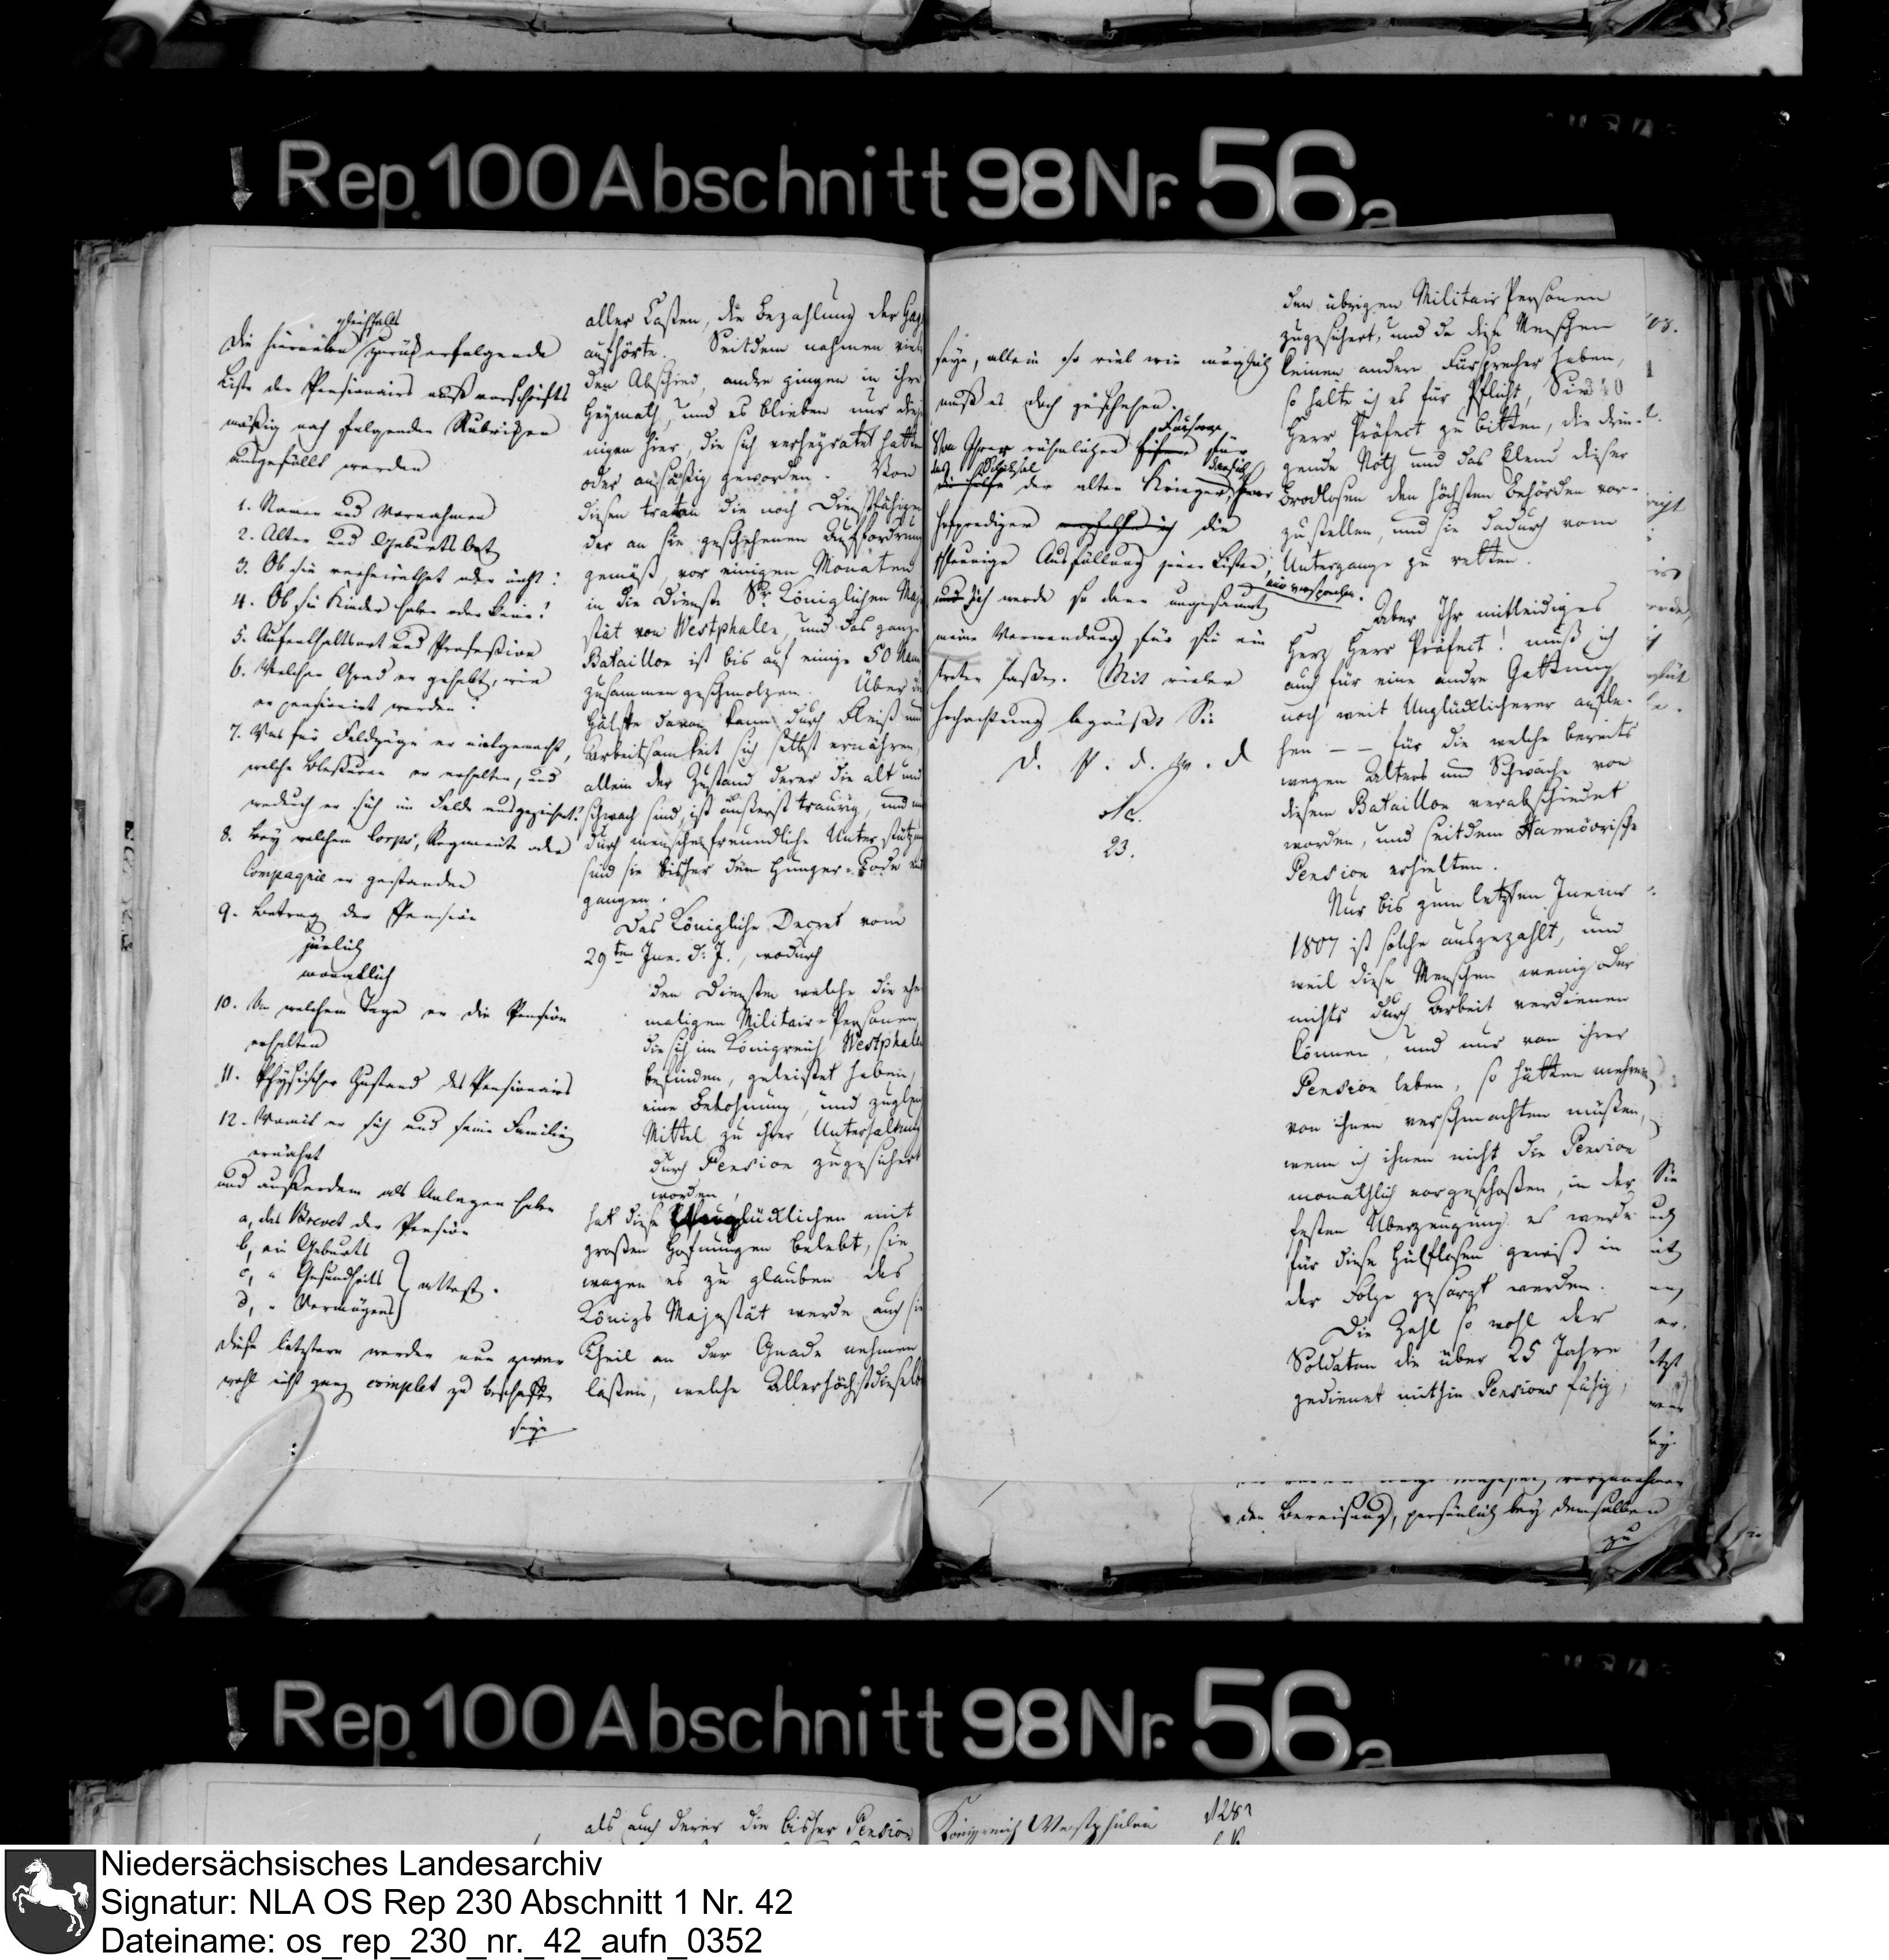 Rep. 100 Abschnitt 98 Nr. 56a
gleichfalls
Die hierneben zurück erfolgende
Liste der Pensionairs muß vorschrifts
mäßig nach folgenden Rubriken
ausgefüllt werden
1. Namen und Vornahmen
2. Alter und Geburts Ort
3. Ob sie verheirathet oder nicht?
4. Ob sie Kinder haben oder keine?
5. Aufenthaltsort und Profeßion
6. Welchen Grad er gehabt, wie
er pensionirt worden?
7. Was für Feldzüge er mitgemacht,
welche Bleßuren er erhalten, und
wodurch er sich im Felde ausgezeichnet?
8. Bey welchem Corps, Regimente oder
Compagnie er gestanden
9. Betrag der Pension
järlich
monatlich
10. An welchem Tage er die Pension
erhalten
11. Physischer Zustand des Pensionairs
12. Womit er sich und seine Familie
ernährt
und außerdem als Anlagen haben
a, das Brevet der Pension
b, ein Geburts
c, " Gesundheits
attest.
d, " Vermögens
Diese letztern werden nun zwar
wohl nicht ganz complet zu beschaffen
seyn
aller Casten, die Bezahlung der Gage
aufhörte. Seitdem nahmen viele
den Abschied, andre gingen in ihre
Heymath, und es blieben nur die
nigen hier, die sich verheyratet hatten
oder ansäßig geworden. Von
diesen traten die noch Dienstfähigen
der an sie geschehenen Aufforderung
gemäß, vor einigen Monaten
in die Dienste Sr. Königlichen Maje
stät von Westphalen, und das ganze
Bataillon ist bis auf einige 50 Mann
zusammen geschmolzen. Über die
Hälfte davon kann durch Fleiß und
Arbeitsamkeit sich selbst ernähren,
allein der Zustand derer die alt und
schwach sind, ist äußerst traurig, und nur
durch menschenfreundliche Unterstützung
sind sie bisher dem Hunger-Tode ent
gangen.
Das Königliche Decret vom
29ten Jun. d. J., wodurch
den Diensten welche die ehe
maligen Militair-Personen
die sich im Königreich Westphalen
befinden, geleistet haben,
eine Belohnung, und zugleich
Mittel zu ihrer Unterhaltung
durch Pension zugesichert
worden,
hat diese Unglücklichen mit
großen Hofnungen belebt, sie
wagen es zu glauben des
Königs Majestät werde auch sie
Theil an der Gnade nehmen
laßen, welche Allerhöchstdieselbe
seyn, allein so viel wie möglich
muß es doch geschehen.
Fürsorge
Von Ihrer rühmlichen für
das Schicksal
der alten Krieger, Herr
Hofprediger die
schleunige Ausfüllung jener Listen
mir versprechen.
ich werde so dann ungesäumt
meine Verwendung für sie ein
treten laßen. Mit vieler
Hochachtung begrüßt Sie
D. P. d. W. d
23.
den übrigen Militair Personen
zugesichert, und da diese Menschen
keinen andern Fürsprecher haben,
so halte ich es für Pflicht, Sie
Herr Präfect zu bitten, die drin-
gende Noth und das Elend dieser
Brodlosen den höchsten Behörden vor-
zustellen, und sie dadurch vom
Untergange zu retten.
Aber Ihr mitleidiges
Herz Herr Präfect! muß ich
auch für eine andre Gattung
noch weit Unglücklicherer anfle-
hen – – für die welche bereits
wegen Alters und Schwäche von
diesem Bataillon verabschiedet
worden, und seitdem Hannövrische
Pension erhielten.
Nur bis zum letzten Junius
1807 ist solche ausgezahlt, und
weil diese Menschen wenig oder
nichts durch Arbeit verdienen
können, und nur von ihrer
Pension leben, so hätten mehrere
von ihnen verschmachten müßen,
wenn ich ihnen nicht die Pension
monathlich vorgeschoßen, in der
festen Überzeugung es werde
für diese Hülflosen gewiß in
der Folge gesorgt werden.
Die Zahl so wohl der
Soldaten die über 25 Jahre
gedienet mithin Pensions fähig,
der Bereisung, persönlich bey demselben
zu
Rep. 100 Abschnitt 98 Nr. 56a
als auch derer die bisher Pension
Königreich Westphalen
Niedersächsisches Landesarchiv
Signatur: NLA OS Rep 230 Abschnitt 1 Nr. 42
Dateiname: os_rep_230_nr._42_aufn_0352